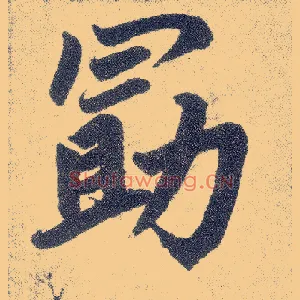 勖
Shufawang.CN